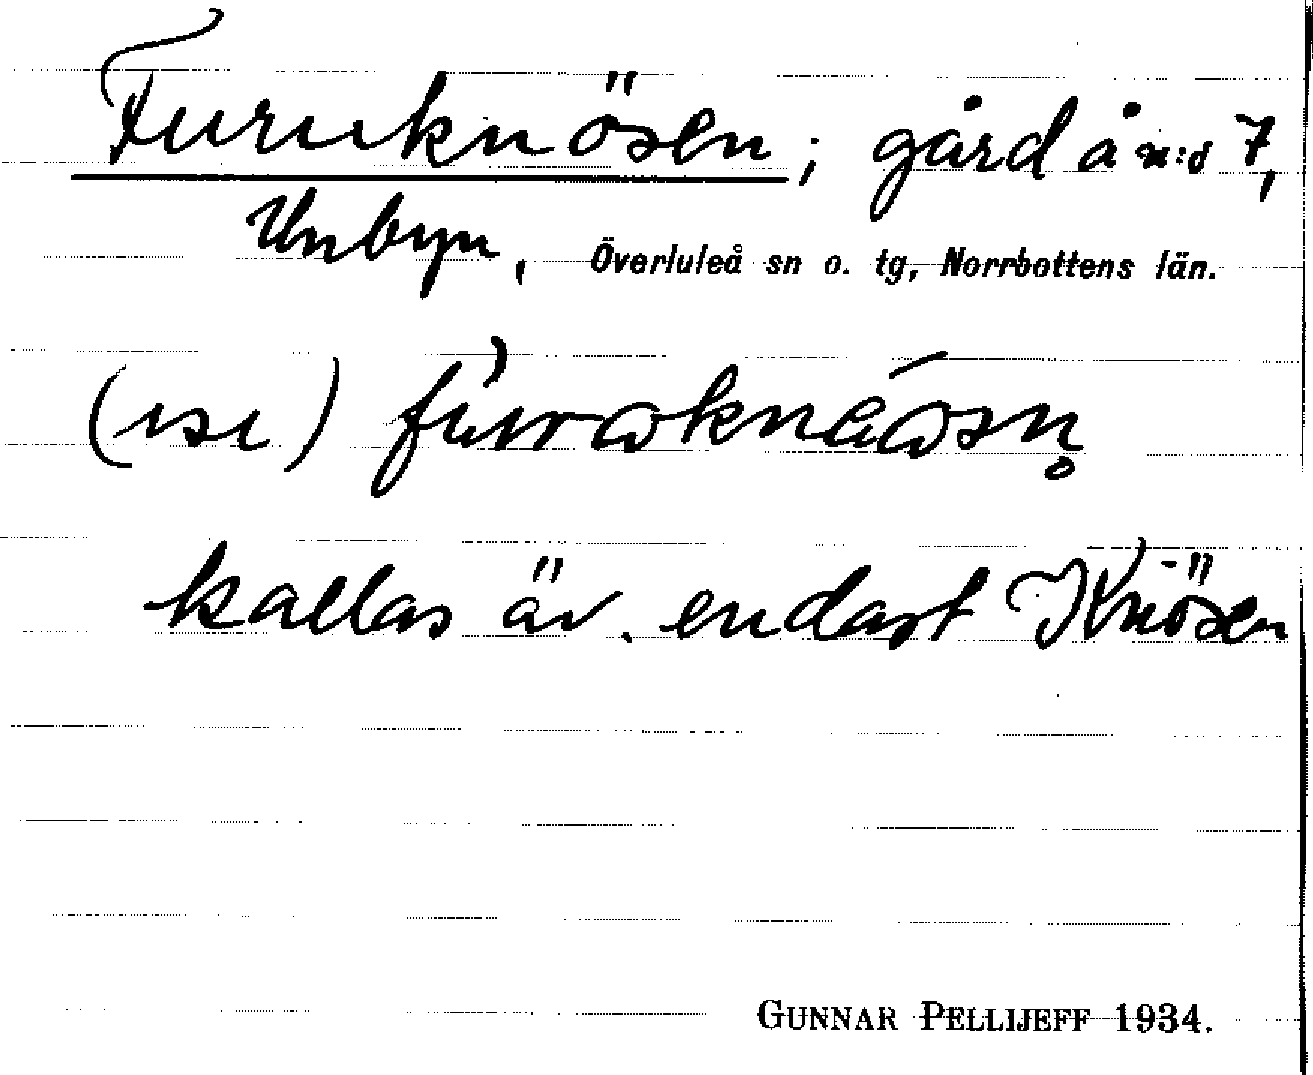 Furuknösen; gård å n:o 7,
Unbyn, Överluleå sn o. tg, Norrbottens län.
kallas äv. endast Knösen
GUNNAR PELLIJEFF 1934.